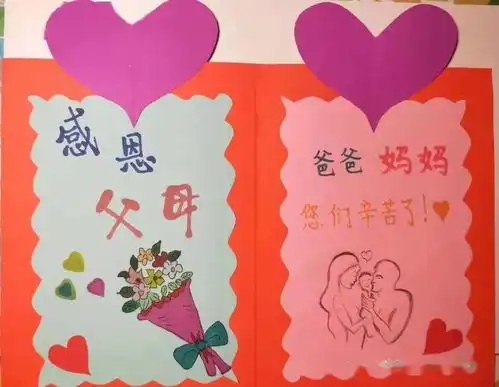 感恩
父母
爸爸 妈妈
您们辛苦了!